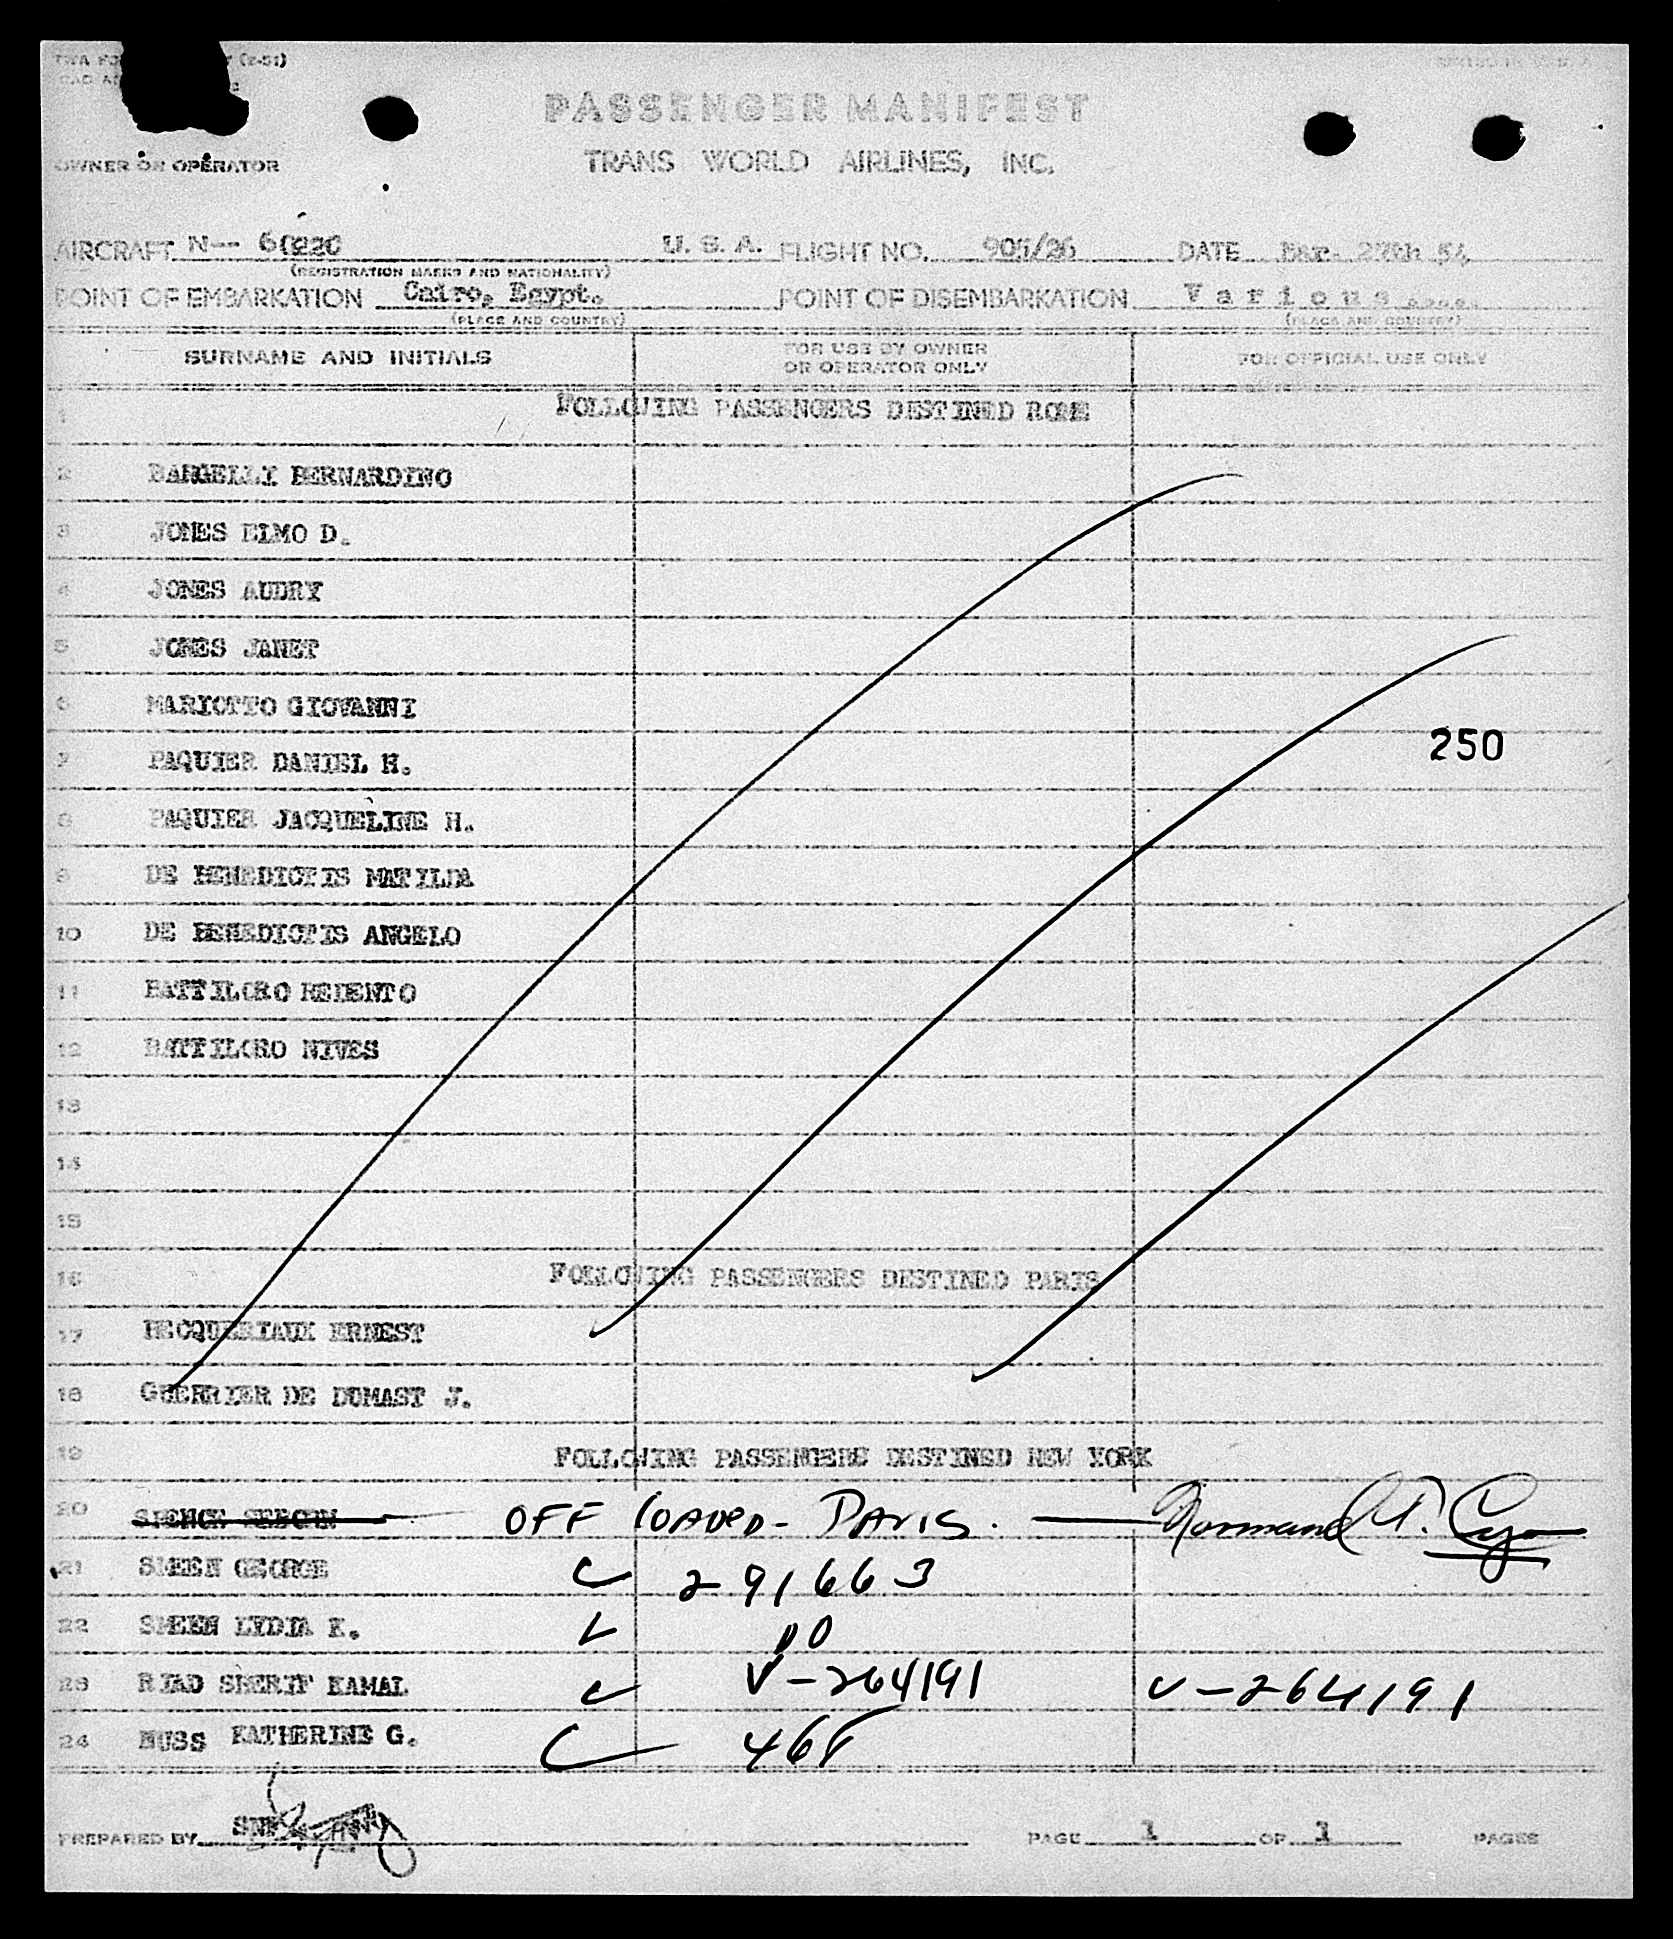 (2-51)
PRINTED IN U. S. A.
PASSENGER MANIFEST
OWNER OR OPERATOR
TRANS WORLD AIRLINES, INC.
AIRCRAFT N-- U. S. A. FLIGHT NO. DATE Mar. 27th 54
(REGISTRATION MARKS AND NATIONALITY)
POINT OF EMBARKATION Cairo, Egypt. POINT OF DISEMBARKATION Various
(PLACE AND COUNTRY) (PLACE AND COUNTRY)
SURNAME AND INITIALS FOR USE BY OWNER OR OPERATOR ONLY FOR OFFICIAL USE ONLY
1 FOLLOWING PASSENGERS DESTINED ROME
2 BARGELLI BERNARDINO
3 JONES ELMO D.
4 JONES AUDRY
5 JONES JANET
6 MARIOTTO GIOVANNI
250
7 PAQUIER DANIEL H.
8 PAQUIER JACQUELINE H.
9 DE BENEDICTIS MATILDA
10 DE BENEDICTIS ANGELO
11 BATTILORO REDENTO
12 BATTILORO NIVES
13
14
15
16 FOLLOWING PASSENGERS DESTINED PARIS
17 BECQUERIAUX ERNEST
18 GUERRIER DE DUMAST J.
19 FOLLOWING PASSENGERS DESTINED NEW YORK
20 OFF LOADED - PARIS.
21 SMEEN GEORGE 291663
22 SMEEN LYDIA K. DO
23 RIAD SHERIF KAMAL V-264191 V-264191
24 NUSS KATHERINE G. 468
PREPARED BY PAGE 1 OF 1 PAGES